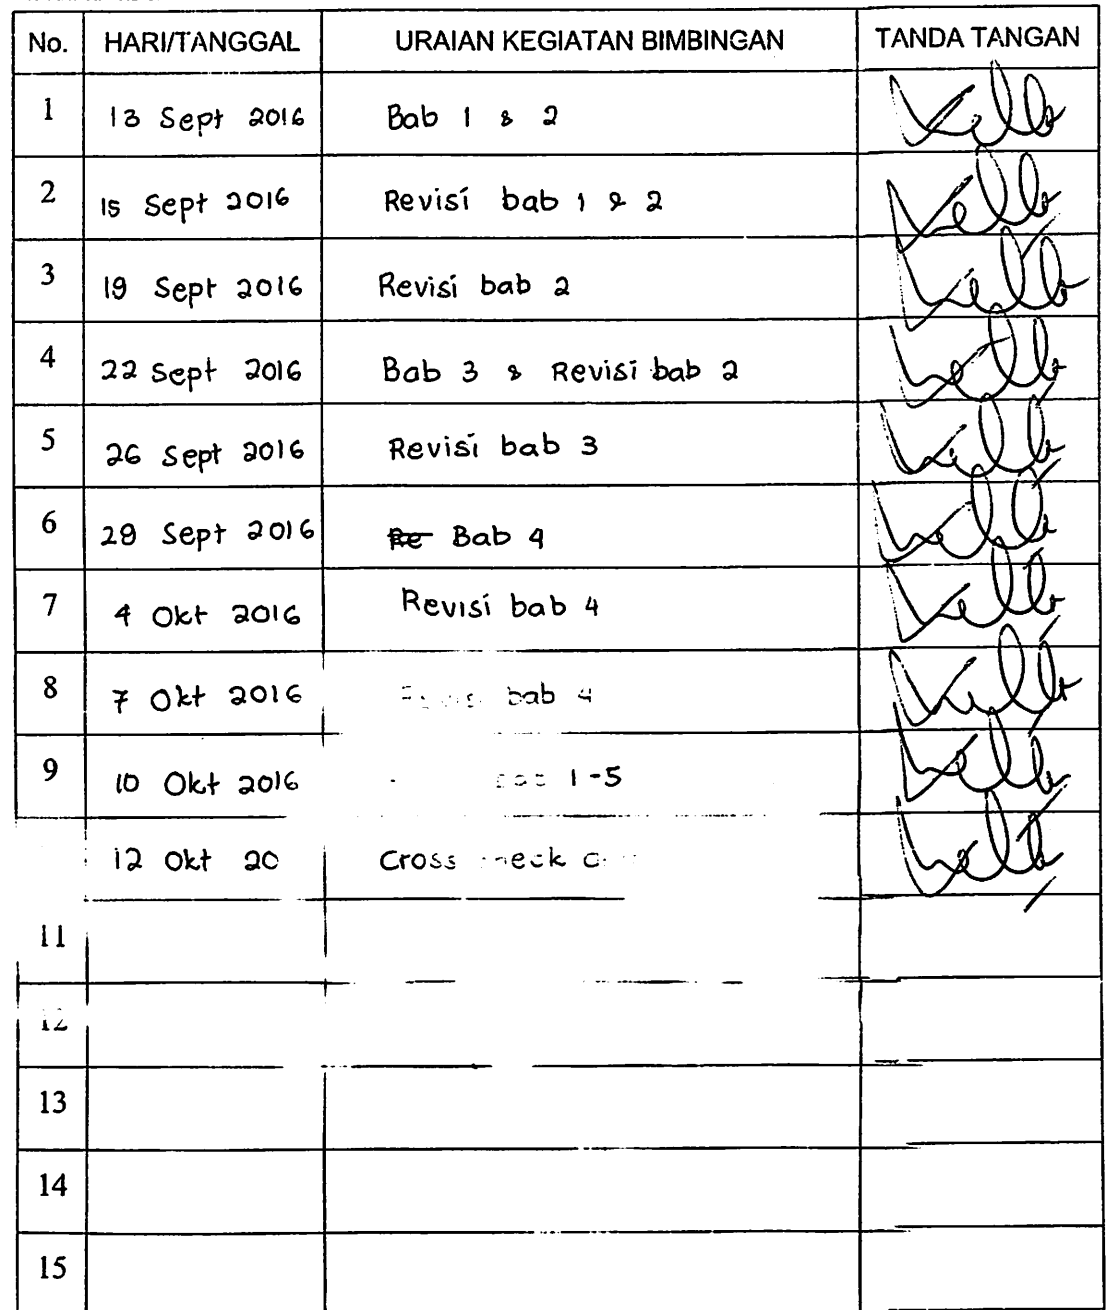 No. HARI/TANGGAL URAIAN KEGIATAN BIMBINGAN TANDA TANGAN
1 13 Sept 2016 Bab 1 & 2
2 15 Sept 2016 Revisi bab 1 & 2
3 19 Sept 2016 Revisi bab 2
4 22 Sept 2016 Bab 3 & Revisi bab 2
5 26 Sept 2016 Revisi bab 3
6 29 Sept 2016 Bab 4
7 4 Okt 2016 Revisi bab 4
8 7 Okt 2016 Revisi bab 4
9 10 Okt 2016 1-5
12 Okt 20 Cross
11
12
13
14
15